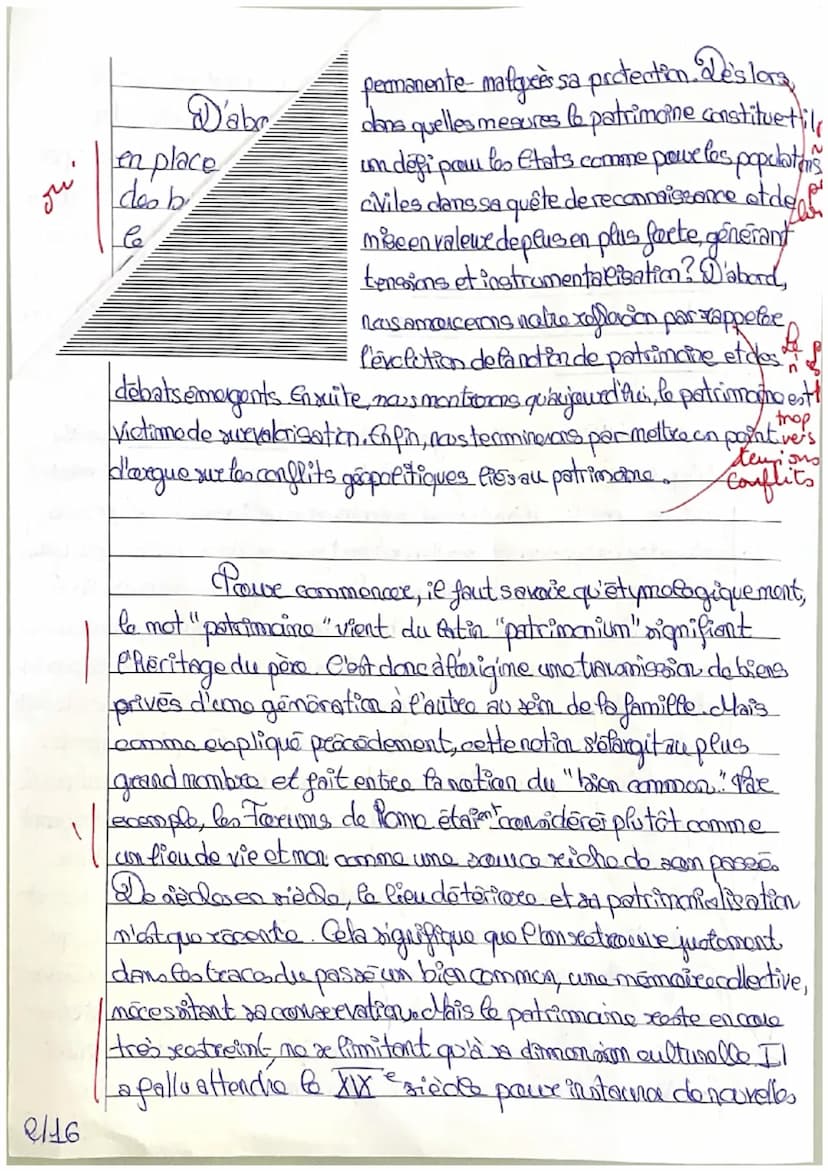 permanente malgrès sa protection. Dès lors,
dans quelles mesures le patrimoine constitue t-il
un défi pour les Etats comme pour les populations
civiles dans sa quête de reconnaissance et de
mise en valeur de plus en plus forte, générant
tensions et instrumentalisation? D'abord,
nous amorcerons notre réflexion par rappeler
l'évolution de la notion de patrimoine et des
D'abo
en place
des b
le
oui
débats émergents. Ensuite, nous montrerons qu'aujourd'hui, le patrimoine est
victime de survalorisation. Enfin, nous terminerons par mettre en point
d'orgue sur les conflits géopolitiques liés au patrimoine.
trop
vers
tensions
Conflits
Pour commencer, il faut savoir qu'étymologiquement,
le mot "patrimoine" vient du latin "patrimonium" signifiant
l'héritage du père. C'est donc à l'origine une transmission de biens
privés d'une génération à l'autre au sein de la famille. Mais
comme expliqué précédement, cette notion s'élargit au plus
grand nombre et fait entrer la notion du "bien commun". Par
exemple, les Forums de Rome étaient considérés plutôt comme
un lieu de vie et non comme une source riche de son passé.
De siècles en siècle, le lieu détériore et sa patrimonialisation
n'est que récente. Cela signifique que l'on retrouve justement
dans les traces du passé un bien commun, une mémoire collective,
nécessitant sa conservation. Mais le patrimoine reste encore
très restreint, ne se limitant qu'à sa dimension culturelle. Il
a fallu attendre le XIXe siècle pour instaurer de nouvelles
2/16